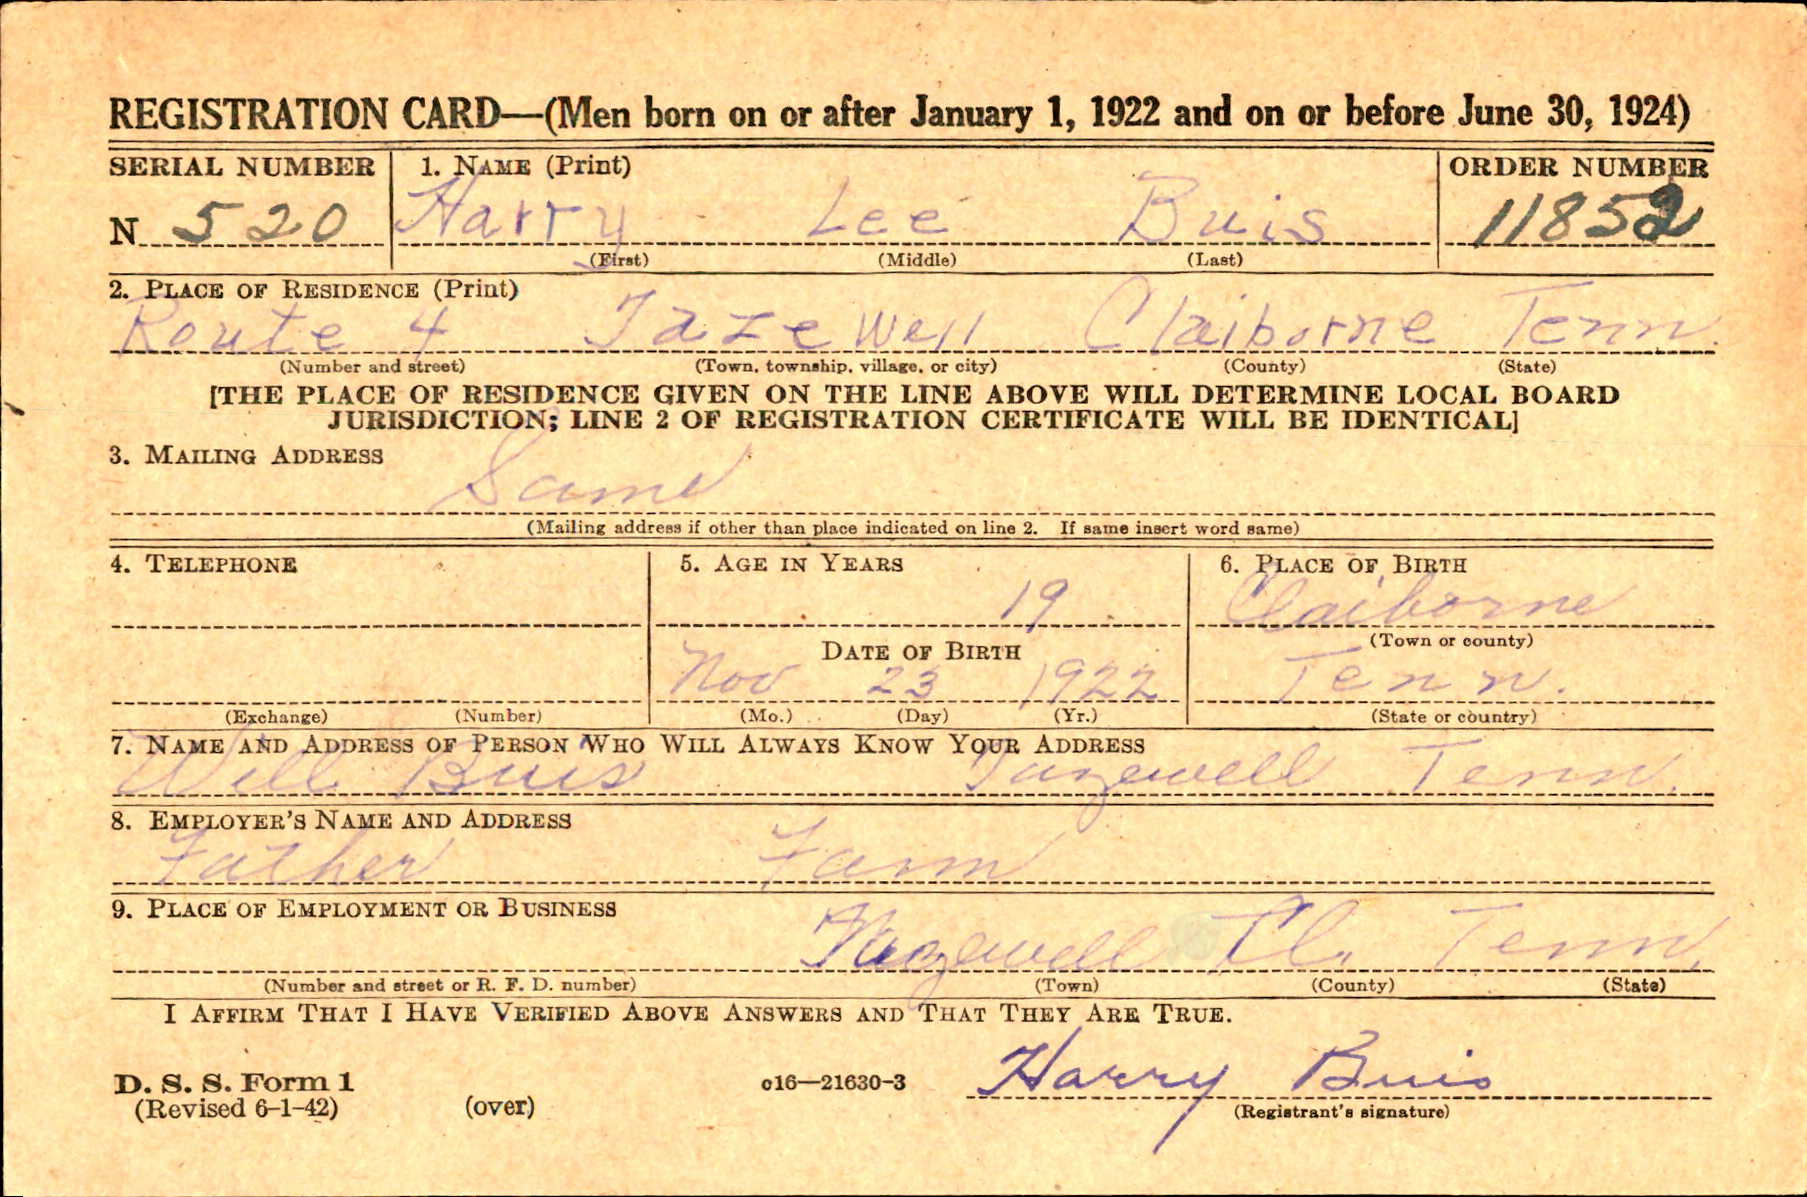 REGISTRATION CARD—(Men born on or after January 1, 1922 and on or before June 30, 1924)
SERIAL NUMBER 1. NAME (Print) ORDER NUMBER
N 520 Harry Lee Buis 11852
(First) (Middle) (Last)
2. PLACE OF RESIDENCE (Print)
Route 4 Tazewell Claiborne Tenn.
(Number and street) (Town, township, village, or city) (County) (State)
[THE PLACE OF RESIDENCE GIVEN ON THE LINE ABOVE WILL DETERMINE LOCAL BOARD
JURISDICTION; LINE 2 OF REGISTRATION CERTIFICATE WILL BE IDENTICAL]
3. MAILING ADDRESS
Same
(Mailing address if other than place indicated on line 2. If same insert word same)
4. TELEPHONE 5. AGE IN YEARS 6. PLACE OF BIRTH
19 Claiborne
DATE OF BIRTH (Town or county)
Nov 23 1922 Tenn.
(Exchange) (Number) (Mo.) (Day) (Yr.) (State or country)
7. NAME AND ADDRESS OF PERSON WHO WILL ALWAYS KNOW YOUR ADDRESS
Will Buis Tazewell Tenn.
8. EMPLOYER'S NAME AND ADDRESS
Father Farm
9. PLACE OF EMPLOYMENT OR BUSINESS
Tazewell Cl. Tenn.
(Number and street or R. F. D. number) (Town) (County) (State)
I AFFIRM THAT I HAVE VERIFIED ABOVE ANSWERS AND THAT THEY ARE TRUE.
D. S. S. Form 1 c16—21630-3 Harry Buis
(Revised 6-1-42) (over) (Registrant's signature)